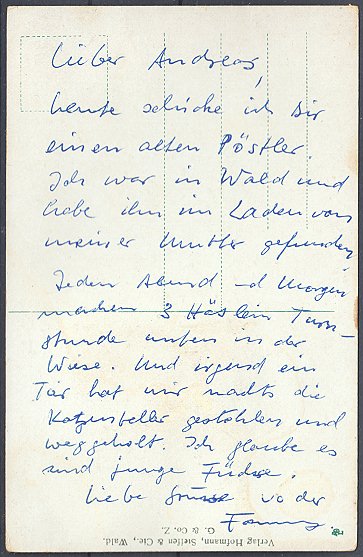 Lieber Andreas,
heute schicke ich Dir
einen alten Pöstler.
Ich war in Wald und
habe ihn im Laden von
meiner Mutter gefunden.
Jeden Abend und Morgen
machen 3 Häslein Turn-
stunde unten in der
Wiese. Und irgend ein
Tier hat mir nachts die
Katzenteller gestohlen und
weggeholt. Ich glaube es
sind junge Füchse.
Liebe Grüsse von der
Verlag Hofmann, Steffen & Cie., Wald.
G. & Co. Z.